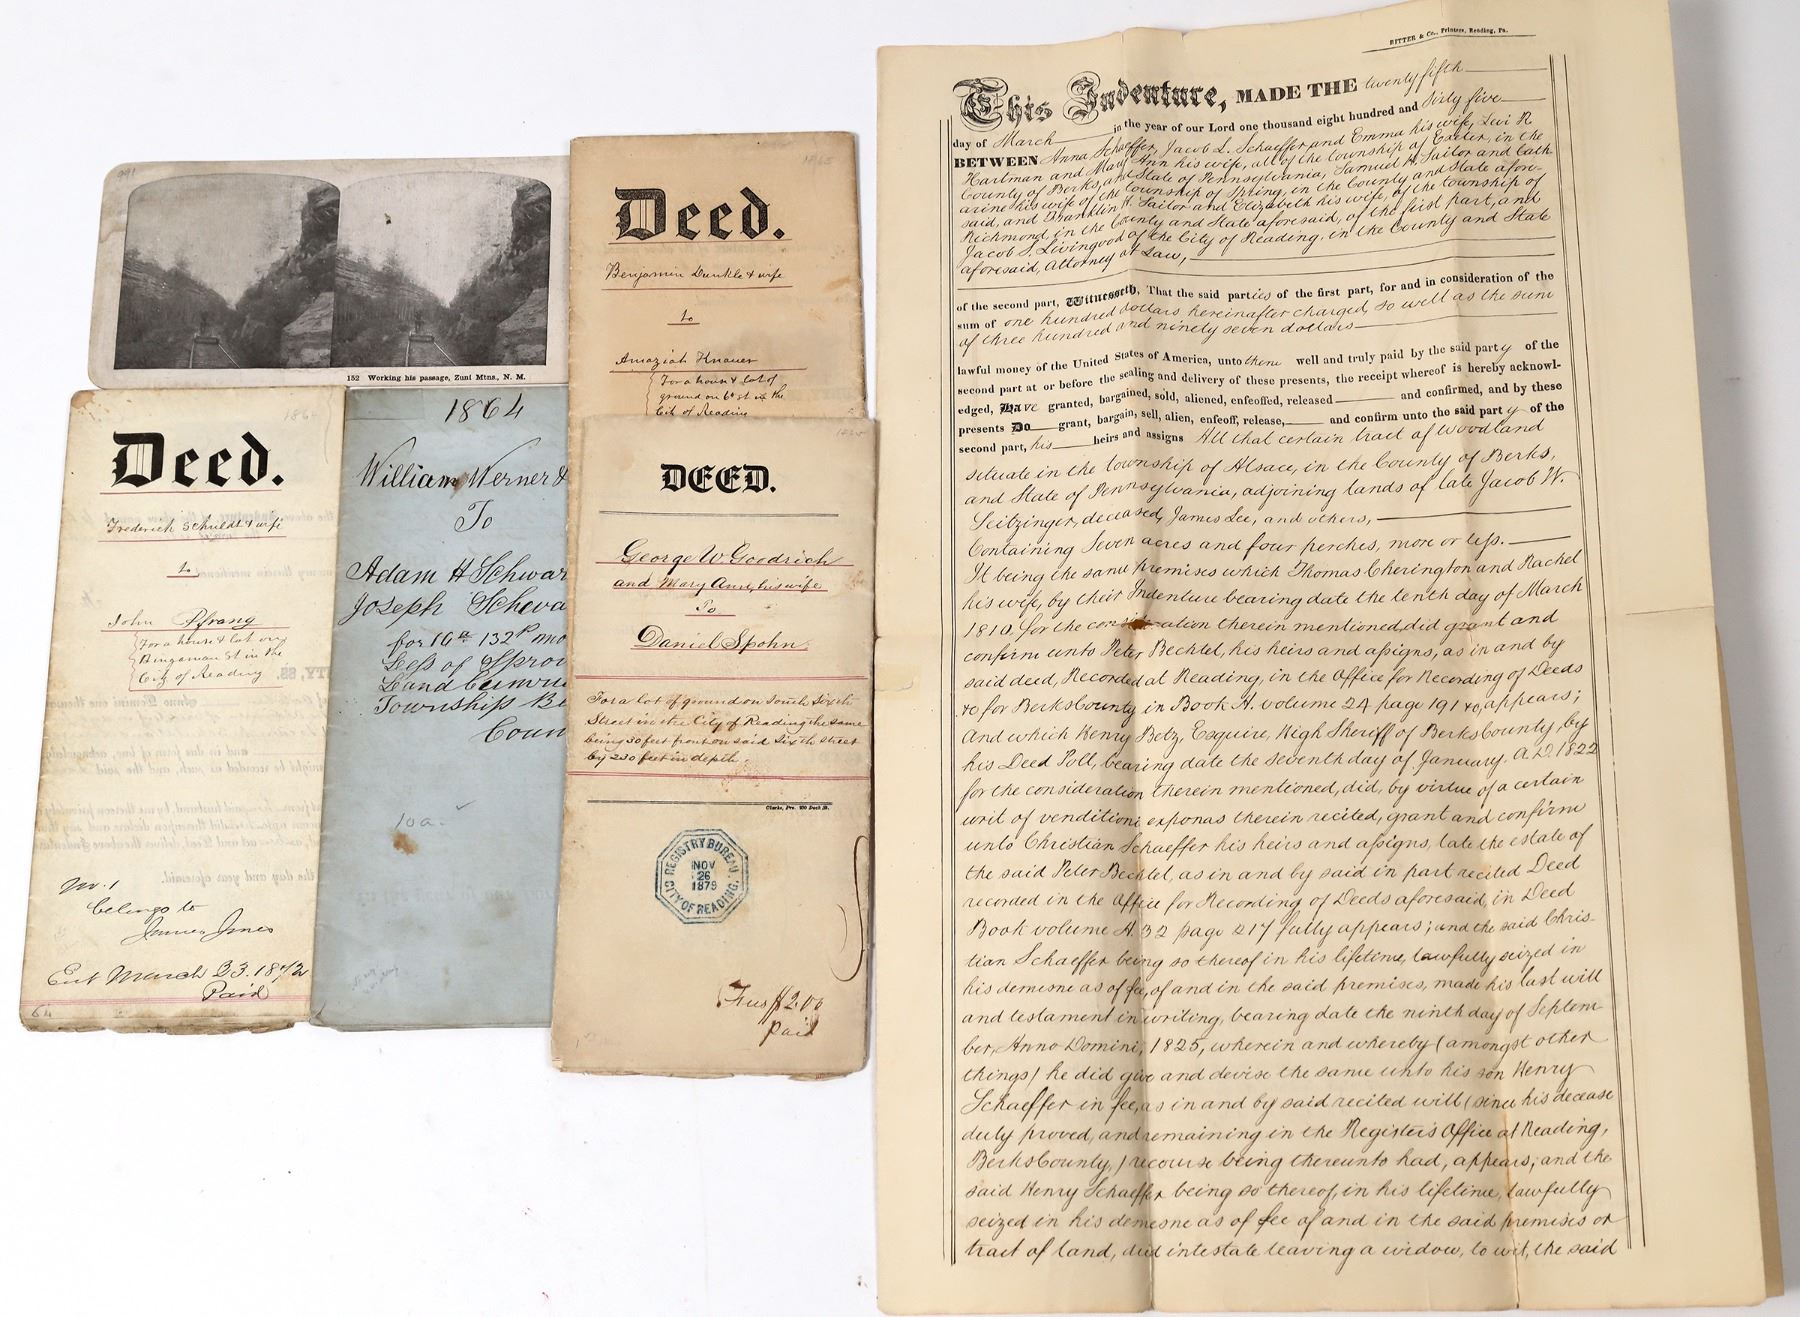 991
152 Working his passage, Zuni Mtns., N. M.
1865
Deed.
Benjamin Dunkle & wife
to
Amaziah Knauer
For a house & lot of
ground on 6th st in the
City of Reading
Deed.
Frederick Schuldt & wife
to
John Pfrang
For a house & lot on
Bingaman St in the
City of Reading
No. 1
belongs to
James Jones
Ent March 23. 1872
Paid
64
1864
William Werner &
To
Adam H Schwar
Joseph Schwa
for 10a 132p
Less of
Land
Township Be
Coun
10a
DEED.
George W. Goodrich
and Mary Ann, his wife
To
Daniel Spohn
For a lot of ground on South Sixth
Street in the City of Reading the same
being 30 feet front on said Sixth Street
by 230 feet in depth.
REGISTRY BUREAU.
NOV
26
1879
CITY OF READING.
$2.00
Paid
RITTER & Co., Printers, Reading, Pa.
This Indenture, MADE THE twenty fifth
day of March in the year of our Lord one thousand eight hundred and sixty five
BETWEEN Anna Schaeffer, Jacob L. Schaeffer and Emma his wife, Levi R
Hartman and Mary Ann his wife, all of the township of Exeter, in the
County of Berks, and State of Pennsylvania, Samuel H. Sailor and Cath
arine his wife of the township of Spring, in the County and State afore-
said, and Franklin H. Sailor and Elizabeth his wife, of the township of
Richmond, in the County and State aforesaid, of the first part, and
Jacob S. Livingood of the City of Reading, in the County and State
aforesaid, Attorney at Law,
of the second part, Witnesseth, That the said parties of the first part, for and in consideration of the
sum of one hundred dollars hereinafter charged, so well as the sum
of three hundred and ninety seven dollars
lawful money of the United States of America, unto them well and truly paid by the said party of the
second part at or before the sealing and delivery of these presents, the receipt whereof is hereby acknowl-
edged, Have granted, bargained, sold, aliened, enfeoffed, released and confirmed, and by these
presents Do grant, bargain, sell, alien, enfeoff, release, and confirm unto the said party of the
second part, his heirs and assigns All that certain tract of Woodland
situate in the township of Alsace, in the County of Berks,
and State of Pennsylvania, adjoining lands of late Jacob W.
Seitzinger, deceased, James Lee, and others,
Containing Seven acres and four perches, more or less.
It being the same premises which Thomas Cherington and Rachel
his wife, by their Indenture bearing date the tenth day of March
1810, for the consideration therein mentioned, did grant and
confirm unto Peter Bechtel, his heirs and assigns, as in and by
said deed, Recorded at Reading, in the Office for Recording of Deeds
&c for Berks County in Book A. volume 24 page 191 &c, appears;
And which Henry Betz, Esquire, High Sheriff of Berks County, by
his Deed Poll, bearing date the seventh day of January. A.D. 1822
for the consideration therein mentioned, did, by virtue of a certain
writ of venditioni exponas therein recited, grant and confirm
unto Christian Schaeffer his heirs and assigns, late the estate of
the said Peter Bechtel, as in and by said in part recited Deed
recorded in the Office for Recording of Deeds aforesaid, in Deed
Book volume A. 32 page 217 fully appears; and the said Chris-
tian Schaeffer being so thereof in his lifetime, lawfully seized in
his demesne as of fee, of and in the said premises, made his last will
and testament in writing, bearing date the ninth day of Septem-
ber, Anno Domini, 1825, wherein and whereby (amongst other
things) he did give and devise the same unto his son Henry
Schaeffer in fee, as in and by said recited will (since his decease
duly proved, and remaining in the Register's Office at Reading,
Berks County,) recourse being thereunto had, appears; and the
said Henry Schaeffer being so thereof, in his lifetime, lawfully
seized in his demesne as of fee of and in the said premises or
tract of land, died intestate leaving a widow, to wit, the said